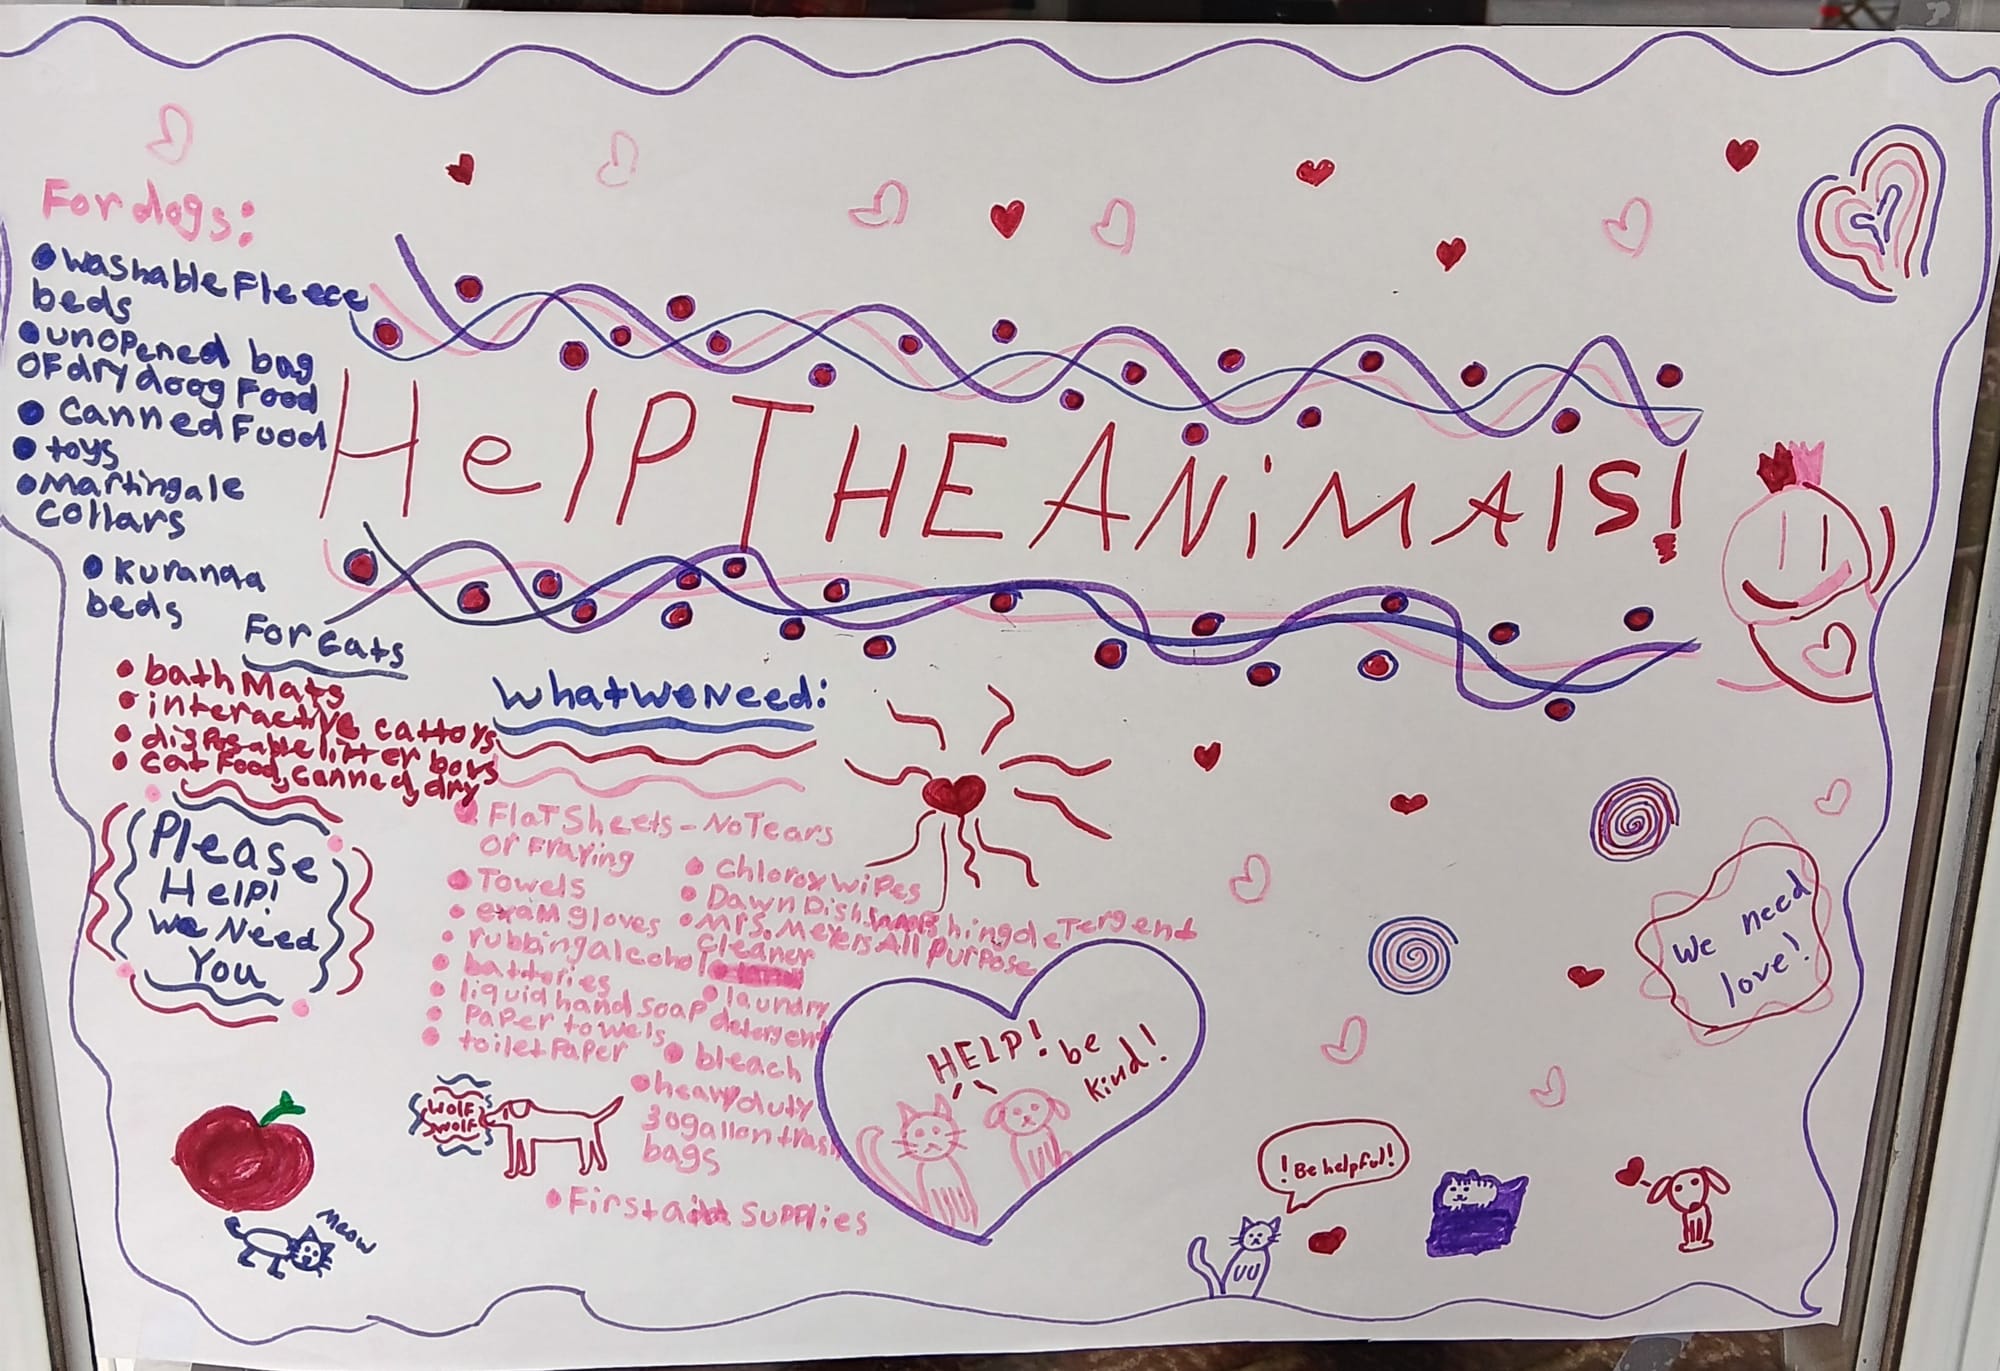 For dogs:
• washable Fleece
beds
• unopened bag
OF dry doog Food
• Canned Food
• toys
• Martingale
Collars
• Kuranda
beds
HelP THE ANiMAlS!
For Cats
• bath Mats
• interactive cat toys
• disposable litter boxs
• cat Food, canned, dry
Please
Help!
We Need
You
What We Need:
• FlaT Sheets - No Tears
or Fraying
• Towels
• exam gloves
• rubbing alcohol
• batteries
• liquid hand soap
• Paper towels
• toilet Paper
• Chlorox wipes
• Dawn Dish washing deTergent
• Mrs. Meyers All Purpose
Cleaner
• laundry
detergent
• bleach
• heavy duty
30 gallon trash
bags
• First aid supplies
WOLF
WOLF
Meow
HELP! be
kind!
We need
love!
! Be helpful!